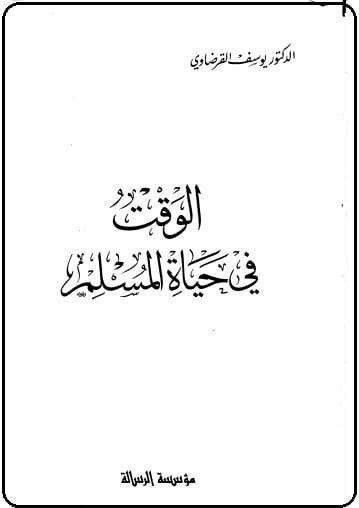 الدكتور يوسف القرضاوي
الوَقْتُ
في حَيَاةِ المُسْلِمِ
مؤسسة الرسالة